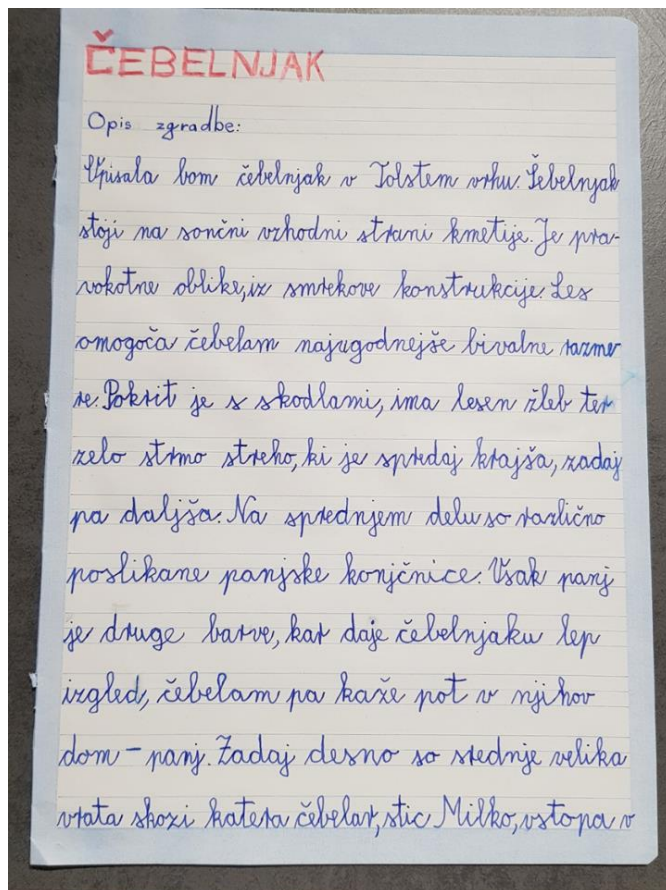 ČEBELNJAK
Opis zgradbe:
Opisala bom čebelnjak v Tolstem vrhu. Čebelnjak
stoji na sončni vzhodni strani kmetije. Je pra-
vokotne oblike, iz smrekove konstrukcije. Les
omogoča čebelam najugodnejše bivalne razme
re. Pokrit je s skodlami, ima lesen žleb ter
zelo strmo streho, ki je spredaj krajša, zadaj
pa daljša. Na sprednjem delu so različno
poslikane panjske konjčnice. Vsak panj
je druge barve, kar daje čebelnjaku lep
izgled, čebelam pa kaže pot v njihov
dom – panj. Zadaj desno so srednje velika
vrata skozi katera čebelar, stic Milko, vstopa v